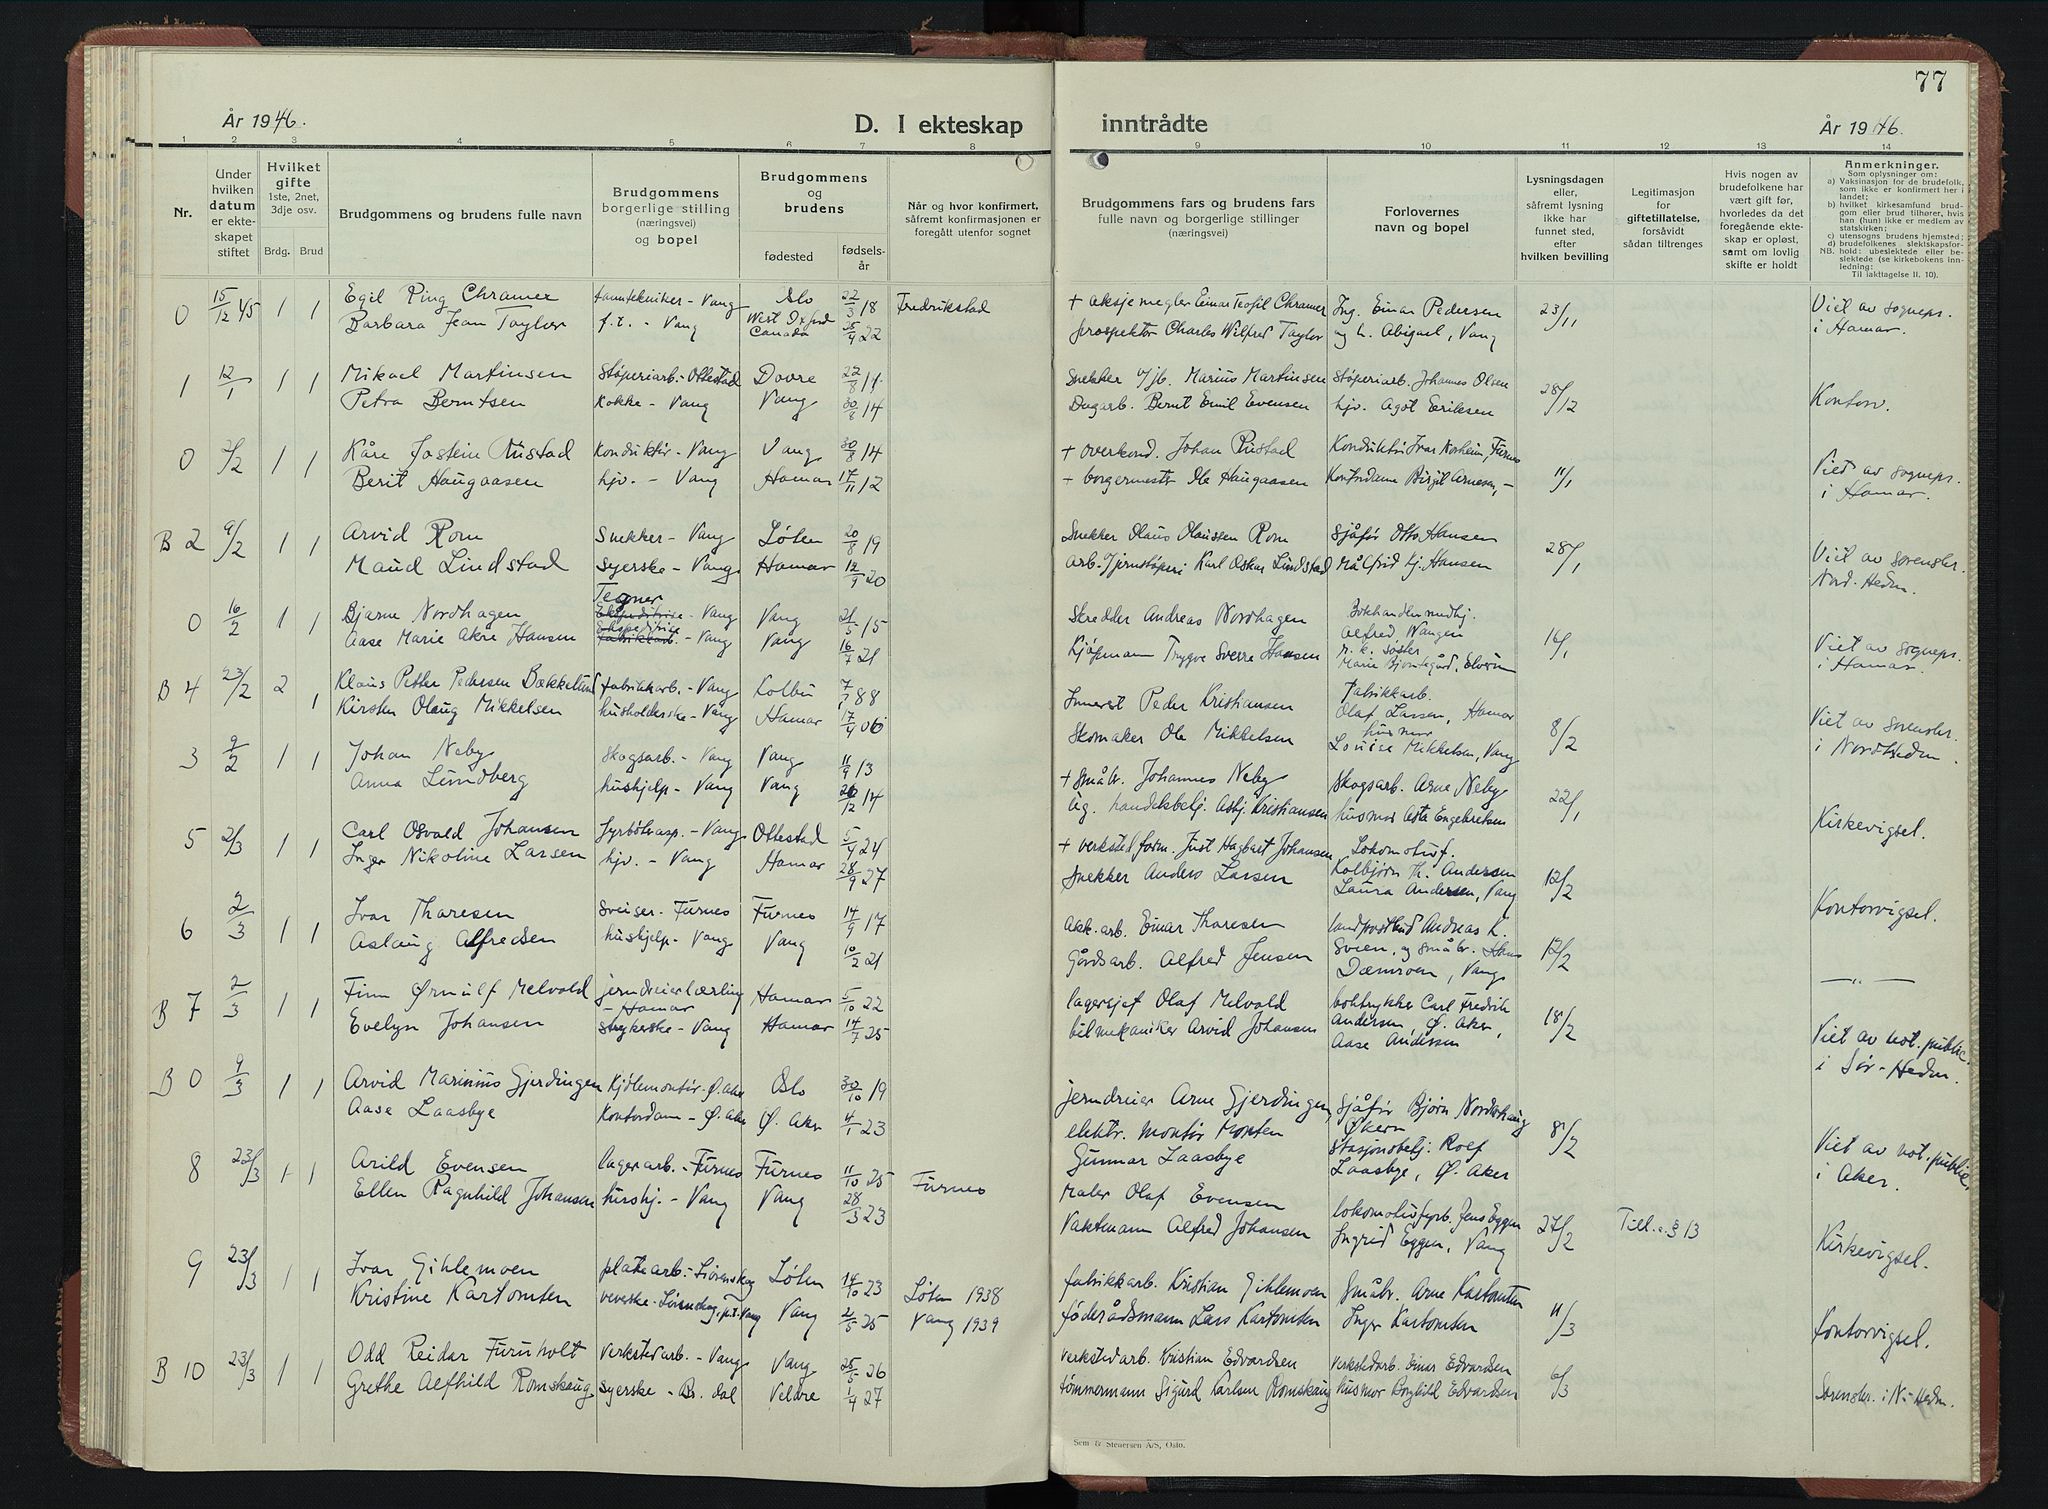 77
År 1946.
D. I ekteskap inntrådte
År 1946.
1 2 3 4 5 6 7 8 9 10 11 12 13 14
Nr.
Under hvilken datum er ekte-skapet stiftet
Hvilket gifte 1ste, 2net, 3dje osv.
Brdg. Brud
Brudgommens og brudens fulle navn
Brudgommens borgerlige stilling (næringsvei) og bopel
Brudgommens og brudens
fødested
fødsels-år
Når og hvor konfirmert, såfremt konfirmasjonen er foregått utenfor sognet
Brudgommens fars og brudens fars fulle navn og borgerlige stillinger (næringsvei)
Forlovernes navn og bopel
Lysningsdagen eller, såfremt lysning ikke har funnet sted, efter hvilken bevilling
Legitimasjon for giftetillatelse, forsåvidt sådan tiltrenges
Hvis nogen av brudefolkene har vært gift før, hvorledes da det foregående ekte-skap er opløst, samt om lovlig skifte er holdt
Anmerkninger.
Som oplysninger om:
a) Vaksinasjon for de brudefolk, som ikke er konfirmert her i landet;
b) hvilket kirkesamfund brud-gom eller brud tilhører, hvis han (hun) ikke er medlem av statskirken;
c) utensogns brudens hjemsted;
d) brudefolkenes slektskapsfor-hold: ubeslektede eller be-slektede (se kirkebokens inn-ledning:
NB.
Til iakttagelse II. 10).
0 15/12 45 1 1 Egil Ping Chramer tanntekniker - Vang Oslo 22/3 18 Fredrikstad + aksjemegler Einar Teofil Chramer Ing. Einar Pedersen 23/11 Viet av sogneps.
Barbara Jean Taylor f.t. - Vang Canada 22 prospektor Charles Wilfred Taylor og h. Abigael, Vang i Hamar.
1 12/1 1 1 Mikael Martinsen Støperiarb. - Ottestad Dovre 22/8 11 Snekker Marius Martinsen Støperiarb. Johannes Olsen 28/12 Kontorv.
Petra Berntsen Kokke - Vang Vang 30/8 14 Dagarb. Bernt Emil Evensen hjv. Agot Eriksen
0 2/2 1 1 Kåre Jostein Rustad Konduktør - Vang Vang 30/8 14 + overkond. Johan Rustad Konduktør Ivar Norheim, Furnes 11/1 Viet av sogneps.
Berit Haugaasen hjv. - Vang Hamar 17/11 12 + borgermester Ole Haugaasen Kontordame Birgit Arnesen, - i Hamar.
B 2 9/2 1 1 Arvid Rom Snekker - Vang Løten 20/8 19 Snekker Olaus Olaussen Rom Sjåfør Otto Hansen 28/1 Viet av sorenskr.
Maud Lindstad Syerske - Vang Hamar 12/9 20 Arb. v/jernstøperi Karl Oskar Lindstad Målfrid Kj. Hansen Nord. Hedm.
Tegner
0 16/2 1 1 Bjarne Nordhagen - Vang Vang 21/5 15 Skredder Andreas Nordhagen Bokhandlermedhj. Alfred Wangen 16/1 Viet av sogneps.
Aase Marie Akre Hansen fabrikkarb. - Vang Vang 16/7 21 Kjøpmann Trygve Sverre Hansen søster Marie Bjørntegård, Elverum i Hamar.
B 4 23/2 2 1 Klaus Petter Pedersen Bækkelund fabrikkarb. - Vang Kolbu 88 Peder Kristiansen Fabrikkarb. Olaf Larsen, Hamar 8/2 Viet av sorenskr.
Kirsten Olaug Mikkelsen husholderske - Vang Hamar 17/4 06 Skomaker Ole Mikkelsen husmor Louise Mikkelsen, Vang i Nord-Hedm.
3 9/2 1 1 Johan Neby Skogsarb. - Vang Vang 11/9 13 + Småbr. Johannes Neby Skogsarb. Arne Neby 22/1 Kirkevigsel.
Anna Lundberg hushjelp - Vang Vang 26/12 14 Ug. handelsbetj. Asbj. Kristiansen husmor Asta Engebretsen
5 2/3 1 1 Carl Osvald Johansen fyrbøterasp. - Vang Ottestad 5/4 24 + verkstedform. Just Hagbart Johansen Lokomotivf. Kolbjørn Th. Andersen 12/2 Kontorvigsel.
Inger Nikoline Larsen hjv. - Vang Hamar 28/9 27 Snekker Anders Larsen Laura Andersen, Vang
6 2/3 1 1 Ivar Thoresen Sveiser - Furnes Furnes 14/9 17 Akk.arb. Einar Thoresen landpostbud Andreas L. Svien, og småbr. Hans Dæmroen, Vang 12/2 — " —
Aslaug Alfredsen hushjelp - Vang Vang 10/2 21 Gårdsarb. Alfred Jensen
B 7 2/3 1 1 Finn Ørnulf Melvold jerndreierlærling - Hamar Hamar 5/10 22 lagersjef Olaf Melvold boktrykker Carl Fredrik Andersen, Ø. Aker, 18/2 Viet av not. public.
Evelyn Johansen strykerske - Vang Hamar 14/7 25 bilmekaniker Arvid Johansen Aase Andersen i Sør-Hedm.
B 0 9/3 1 1 Arvid Marinius Gjerdingen Kjølemontør - Ø. Aker Oslo 30/10 19 jerndreier Arne Gjerdingen, Sjåfør Bjørn Nordskaug Økern 8/2 Viet av not. public.
Aase Laasbye Kontordam - Ø. Aker Ø. Aker 4/1 23 elektr. montør Morten Gunnar Laasbye Stasjonsbetj. Rolf Laasbye, Ø. Aker i Aker.
8 23/3 1 1 Arild Evensen lagerarb. - Furnes Furnes 11/10 25 Furnes Maler Olaf Evensen lokomotivfyrb. Jens Eggen 27/2 Till. § 13 Kirkevigsel.
Ellen Ragnhild Johansen hushj. - Vang Vang 28/3 23 Vaktmann Alfred Johansen Ingrid Eggen, Vang
9 23/3 1 1 Ivar Gihlemoen platearb. - Lørenskog Løten 14/10 23 Løten 1938 fabrikkarb. Kristian Gihlemoen Småbr. Arne Kartomten 11/3 Kontorvigsel.
Kristine Kartomten veverske - Lørenskog, p.t. Vang Vang 2/5 25 Vang 1939 føderådsmann Lars Kartomten Inger Kartomten
B 10 23/3 1 1 Odd Reidar Furuholt Verkstedarb. - Vang Vang 25/5 26 Verkstedarb. Kristian Edvardsen Verkstedarb. Einar Edvardsen 6/3 Sorenskr. i N. Hedm.
Grethe Alfhild Romskaug Syerske - Br. dal Veldre 1/4 27 tømmermann Sigurd Karlsen Romskaug husmor Borghild Edvardsen
Sem & Stenersen A/S, Oslo.